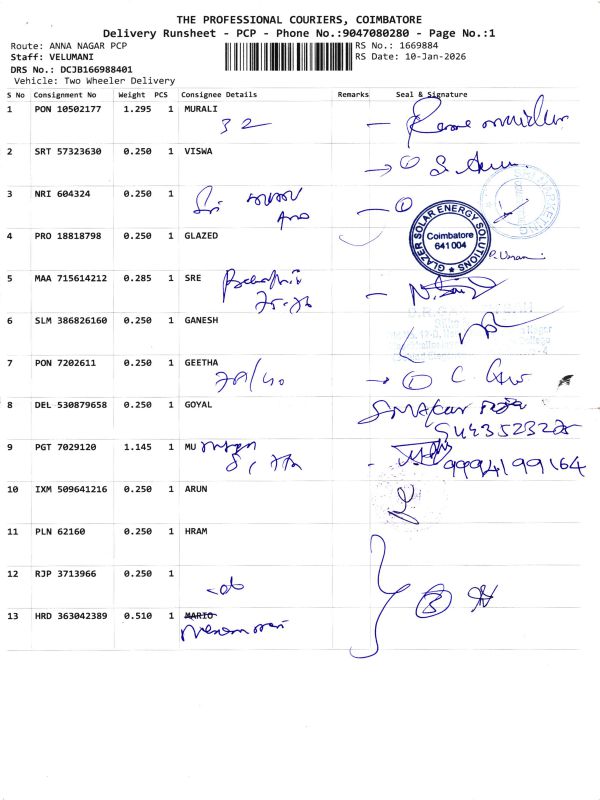 THE PROFESSIONAL COURIERS, COIMBATORE
Delivery Runsheet - PCP - Phone No.:9047080280 - Page No.:1
Route: ANNA NAGAR PCP RS No.: 1669884
Staff: VELUMANI RS Date: 10-Jan-2026
DRS No.: DCJB166988401
Vehicle: Two Wheeler Delivery
S No Consignment No Weight PCS Consignee Details Remarks Seal & Signature
1 PON 10502177 1.295 1 MURALI
32
2 SRT 57323630 0.250 1 VISWA
3 NRI 604324 0.250 1
Sri
4 PRO 18818798 0.250 1 GLAZED
GLAZER SOLAR ENERGY SOLUTIONS
Coimbatore
641 004
5 MAA 715614212 0.285 1 SRE
6 SLM 386826160 0.250 1 GANESH
7 PON 7202611 0.250 1 GEETHA
8 DEL 530879658 0.250 1 GOYAL
9 PGT 7029120 1.145 1 MU
9994199164
10 IXM 509641216 0.250 1 ARUN
11 PLN 62160 0.250 1 HRAM
12 RJP 3713966 0.250 1
3
13 HRD 363042389 0.510 1 MARIO